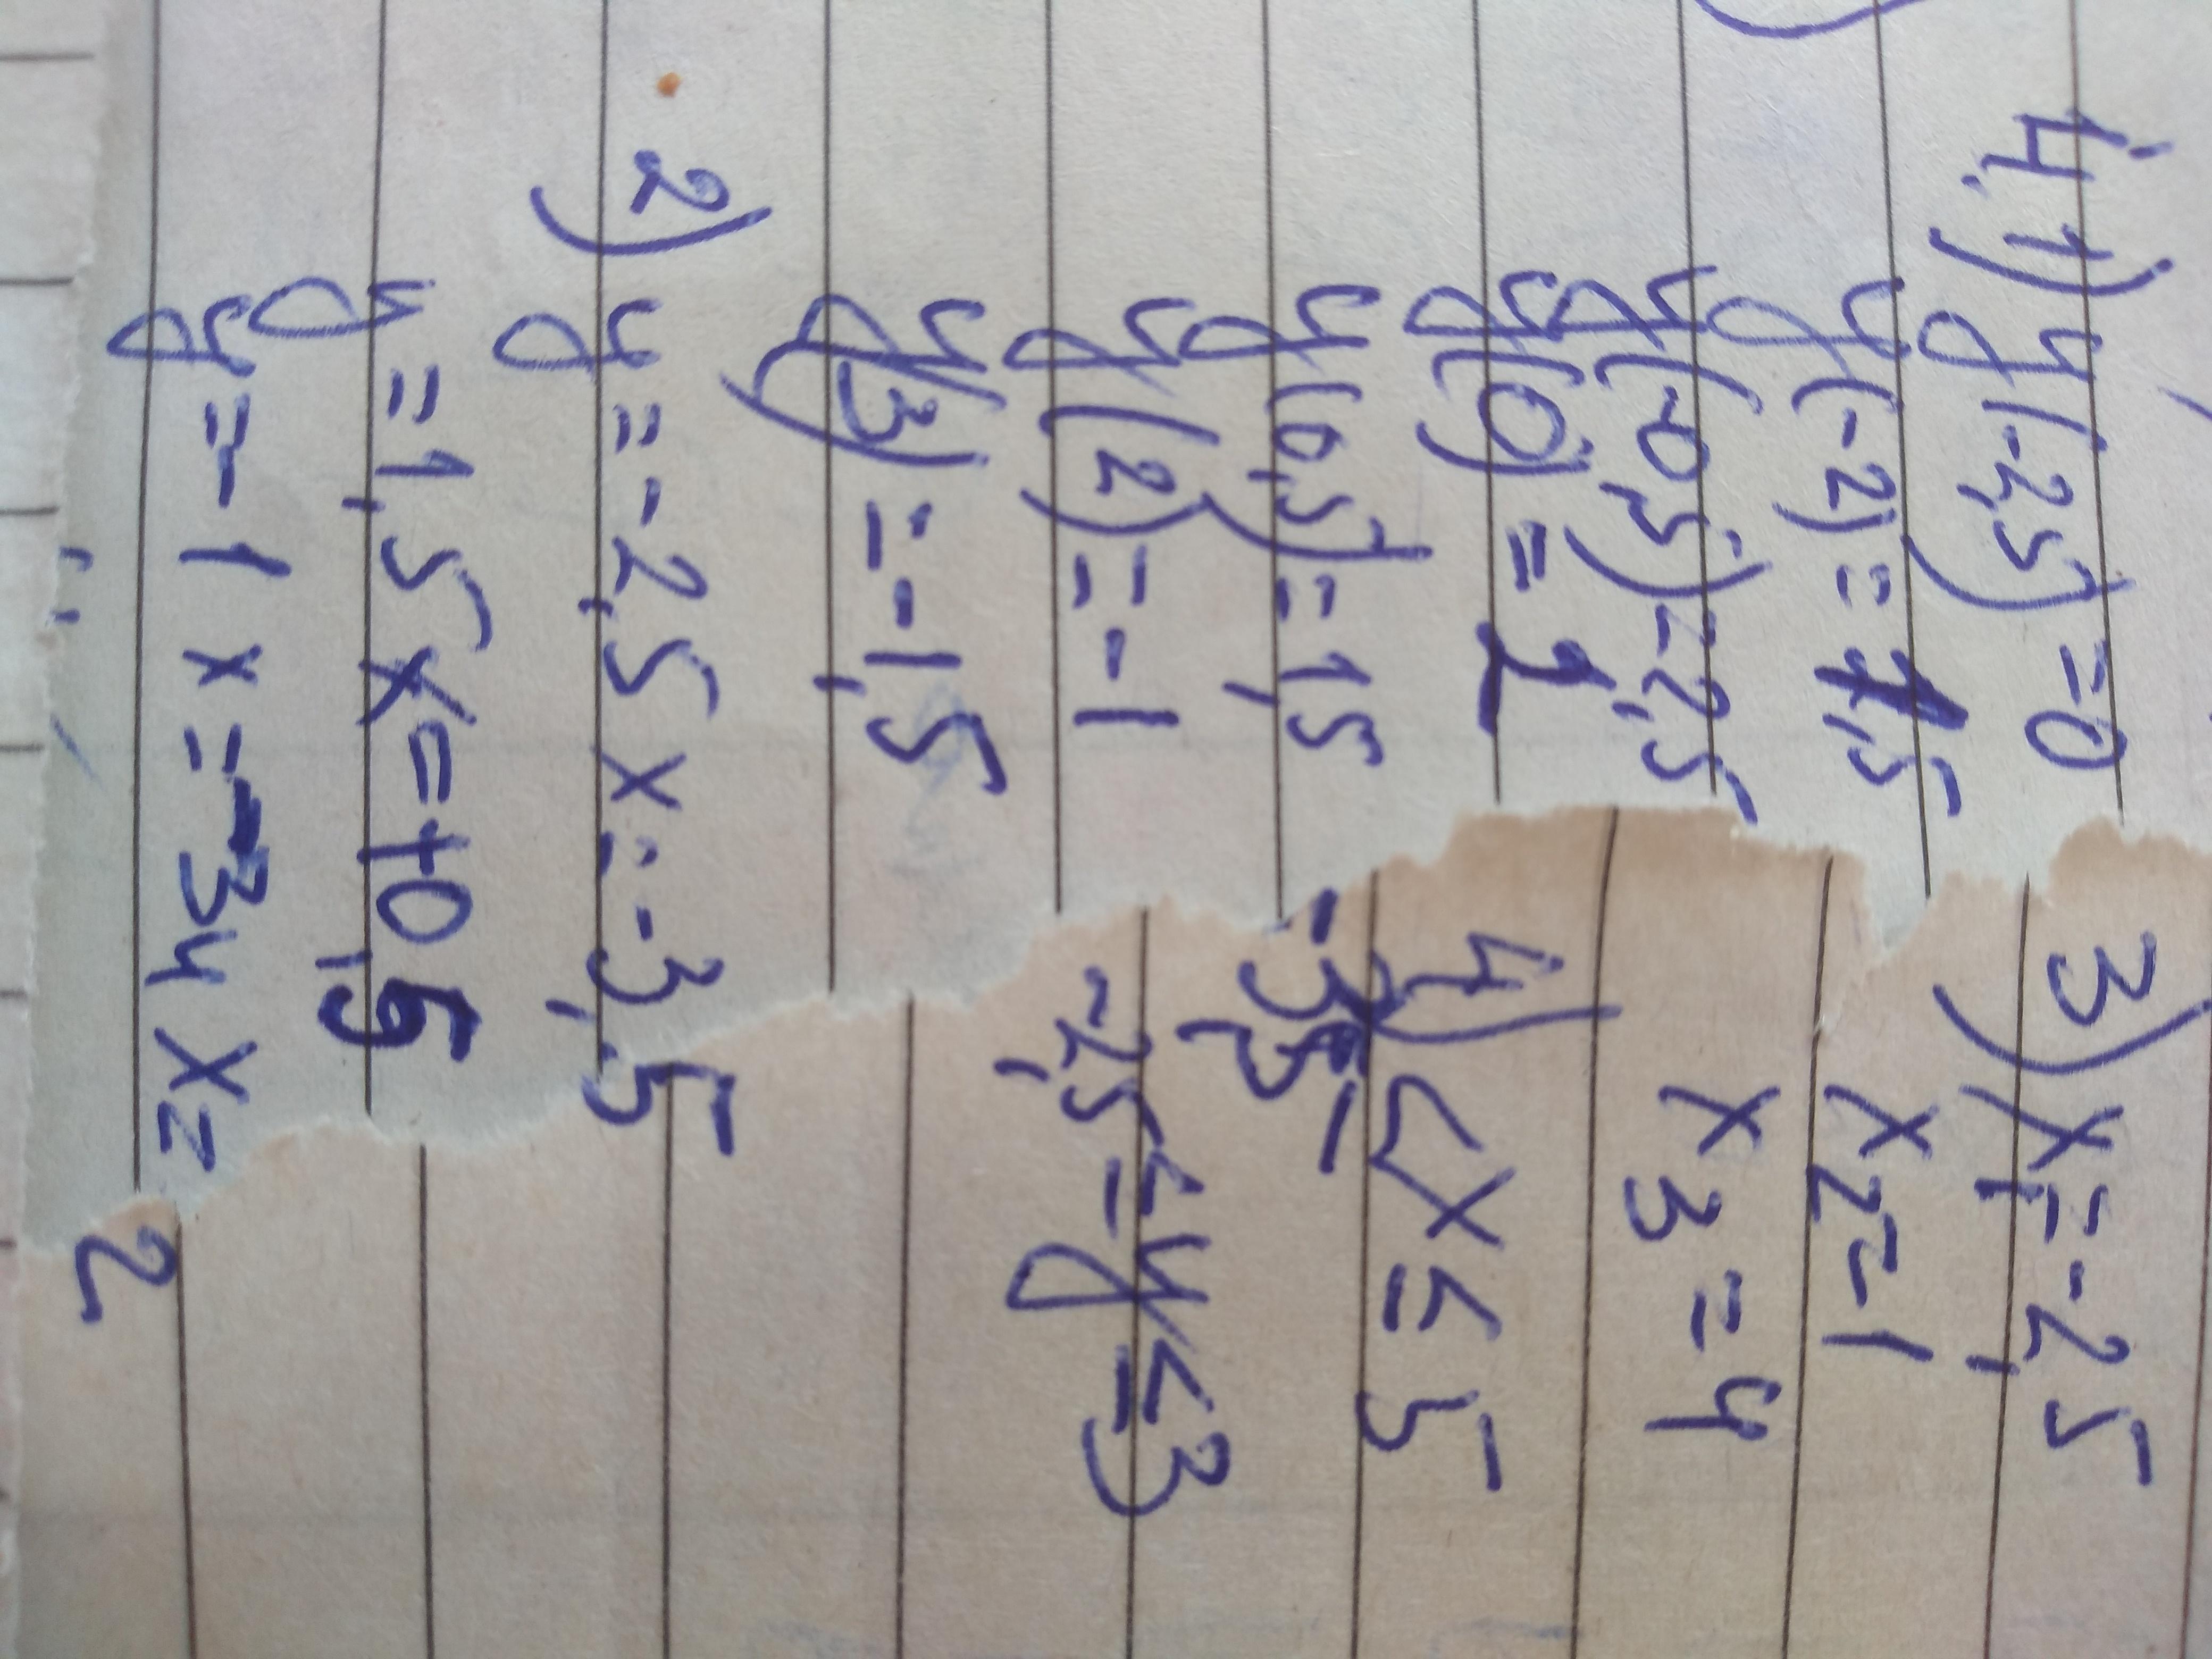 4. 1) y(-2,5)=0
y(-2)=1,5
y(-0,5)=2,5
y(0)=2
y(0,5)=1,5
y(2)=-1
y(3)=-1,5
2) y=-2,5 x=-3,5
y=1,5 x=+0,5
y=-1 x=-3 и x=2
3) x1=-2,5
x2=1
x3=4
4) -3,5<x≤5
-2,5≤y≤3